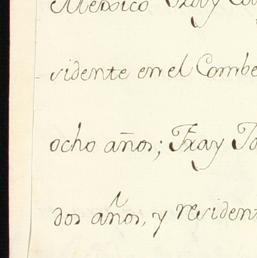 Mexico Fray
vidente en el Combe
ocho años; Fray Jo
dos años, y resident